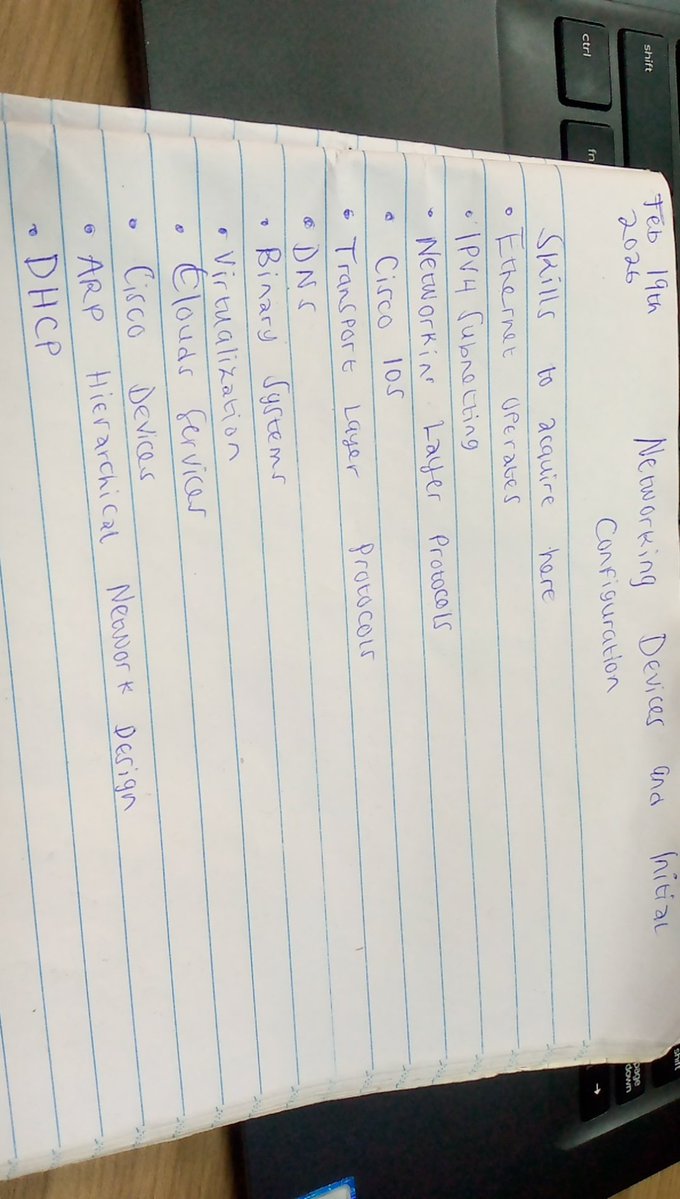 Feb 19th
2026
Networking Devices and Initial
Configuration
Skills to acquire here
• Ethernet operates
• IPV4 Subnetting
• Networkin Layer Protocols
• Cisco IOS
• Transport Layer Protocols
• DNS
• Binary Systems
• Virtualization
• Clouds Services
• Cisco Devices
• ARP Hierarchical Network Design
• DHCP
ctrl
shift
fn
page
down
shift